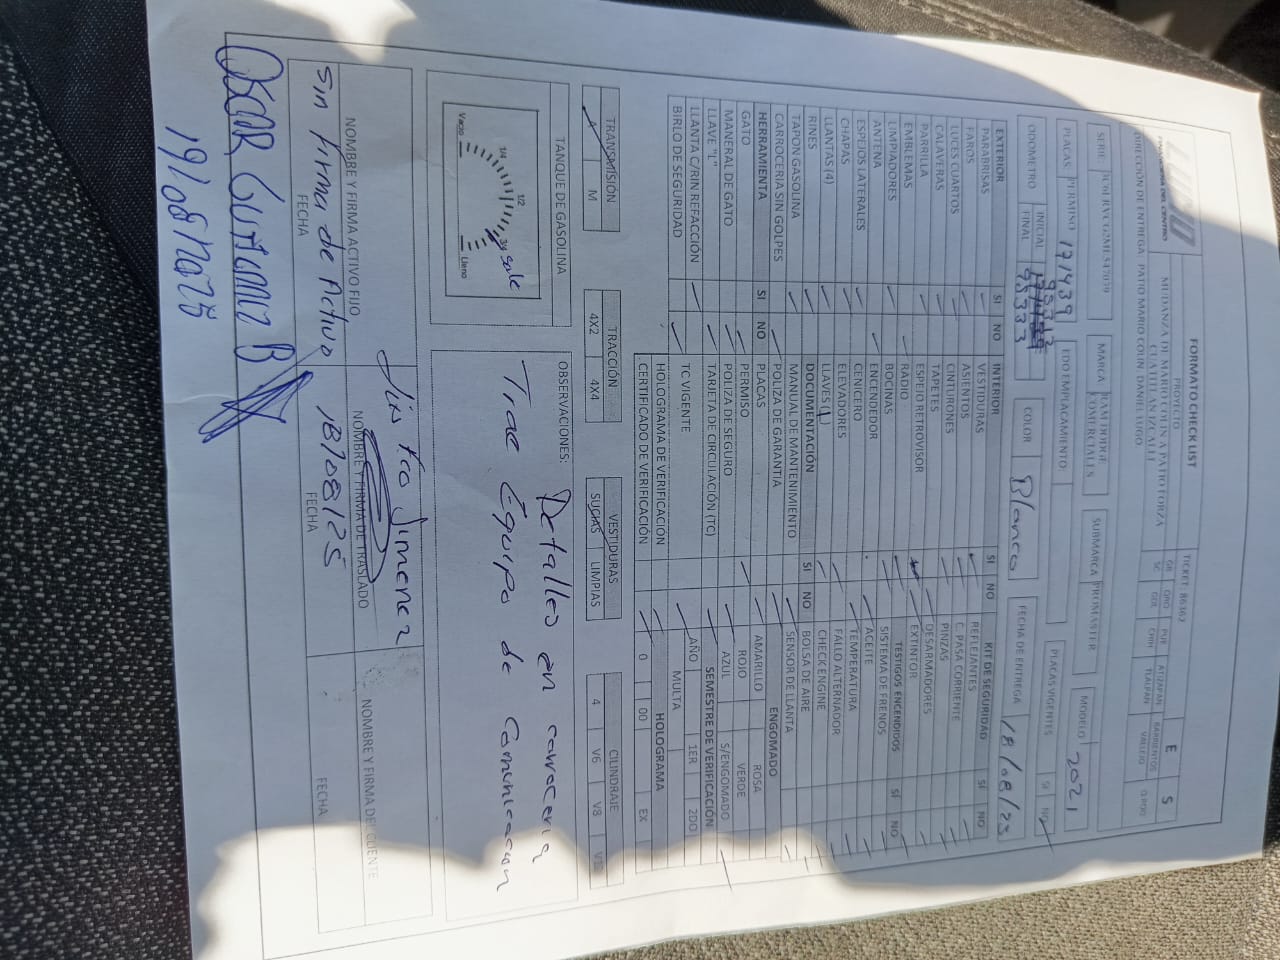 FORMATO CHECK LIST
PROYECTO
TICKET: 86362
MUDANZA DE MARIO COLIN A PATIO FORZA
CUATITLAN IZCALLI
GR QRO PUE ATIZAPAN BARRIENTOS E S
SC GDL CHIH TLALPAN VALLEJO
DIRECCIÓN DE ENTREGA: PATIO MARIO COLIN DANIEL LUGO
SERIE:
MARCA RAM DODGE
COMERCIALES
SUBMARCA PROMASTER
MODELO 2021
PLACAS PERMISO 171439
EDO EMPLACAMIENTO:
PLACAS VIGENTES SI NO
ODOMETRO INICIAL
FINAL 95333
COLOR Blanco
FECHA DE ENTREGA 18/08/25
EXTERIOR SI NO INTERIOR SI NO KIT DE SEGURIDAD SI NO
PARABRISAS VESTIDURAS REFLEJANTES
FAROS ASIENTOS C. PASA CORRIENTE
LUCES CUARTOS CINTURONES PINZAS
CALAVERAS TAPETES DESARMADORES
PARRILLA ESPEJO RETROVISOR EXTINTOR
EMBLEMAS RADIO TESTIGOS ENCENDIDOS SI NO
LIMPIADORES BOCINAS SISTEMA DE FRENOS
ANTENA ENCENDEDOR ACEITE
ESPEJOS LATERALES CENICERO TEMPERATURA
CHAPAS ELEVADORES FALLO ALTERNADOR
LLANTAS (4) LLAVES (1) CHECK ENGINE
RINES DOCUMENTACIÓN SI NO BOLSA DE AIRE
TAPON GASOLINA MANUAL DE MANTENIMIENTO SENSOR DE LLANTA
CARROCERIA SIN GOLPES POLIZA DE GARANTIA ENGOMADO
HERRAMIENTA SI NO PLACAS AMARILLO ROSA
GATO PERMISO ROJO VERDE
MANERAL DE GATO POLIZA DE SEGURO AZUL S/ENGOMADO
LLAVE "L" TARJETA DE CIRCULACIÓN (TC) SEMESTRE DE VERIFICACIÓN
LLANTA C/RIN REFACCIÓN TC VIGENTE AÑO 1ER 2DO
BIRLO DE SEGURIDAD HOLOGRAMA DE VERIFICACIÓN MULTA
HOLOGRAMA
CERTIFICADO DE VERIFICACIÓN 0 00 EX
TRANSMISIÓN TRACCIÓN VESTIDURAS CILINDRAJE
M 4X2 4X4 SUCIAS LIMPIAS 4 V6 V8
TANQUE DE GASOLINA
Vacio 1/4 1/2 3/4 Lleno
sale
OBSERVACIONES: Detalles en carroceria
Trae Equipo de comunicacion
NOMBRE Y FIRMA ACTIVO FIJO
Sin Firma de Activo
FECHA
Jimenez
NOMBRE Y FIRMA DE TRASLADO
18/08/25
FECHA
NOMBRE Y FIRMA DEL CLIENTE
FECHA
OSCAR B
19/08/2025